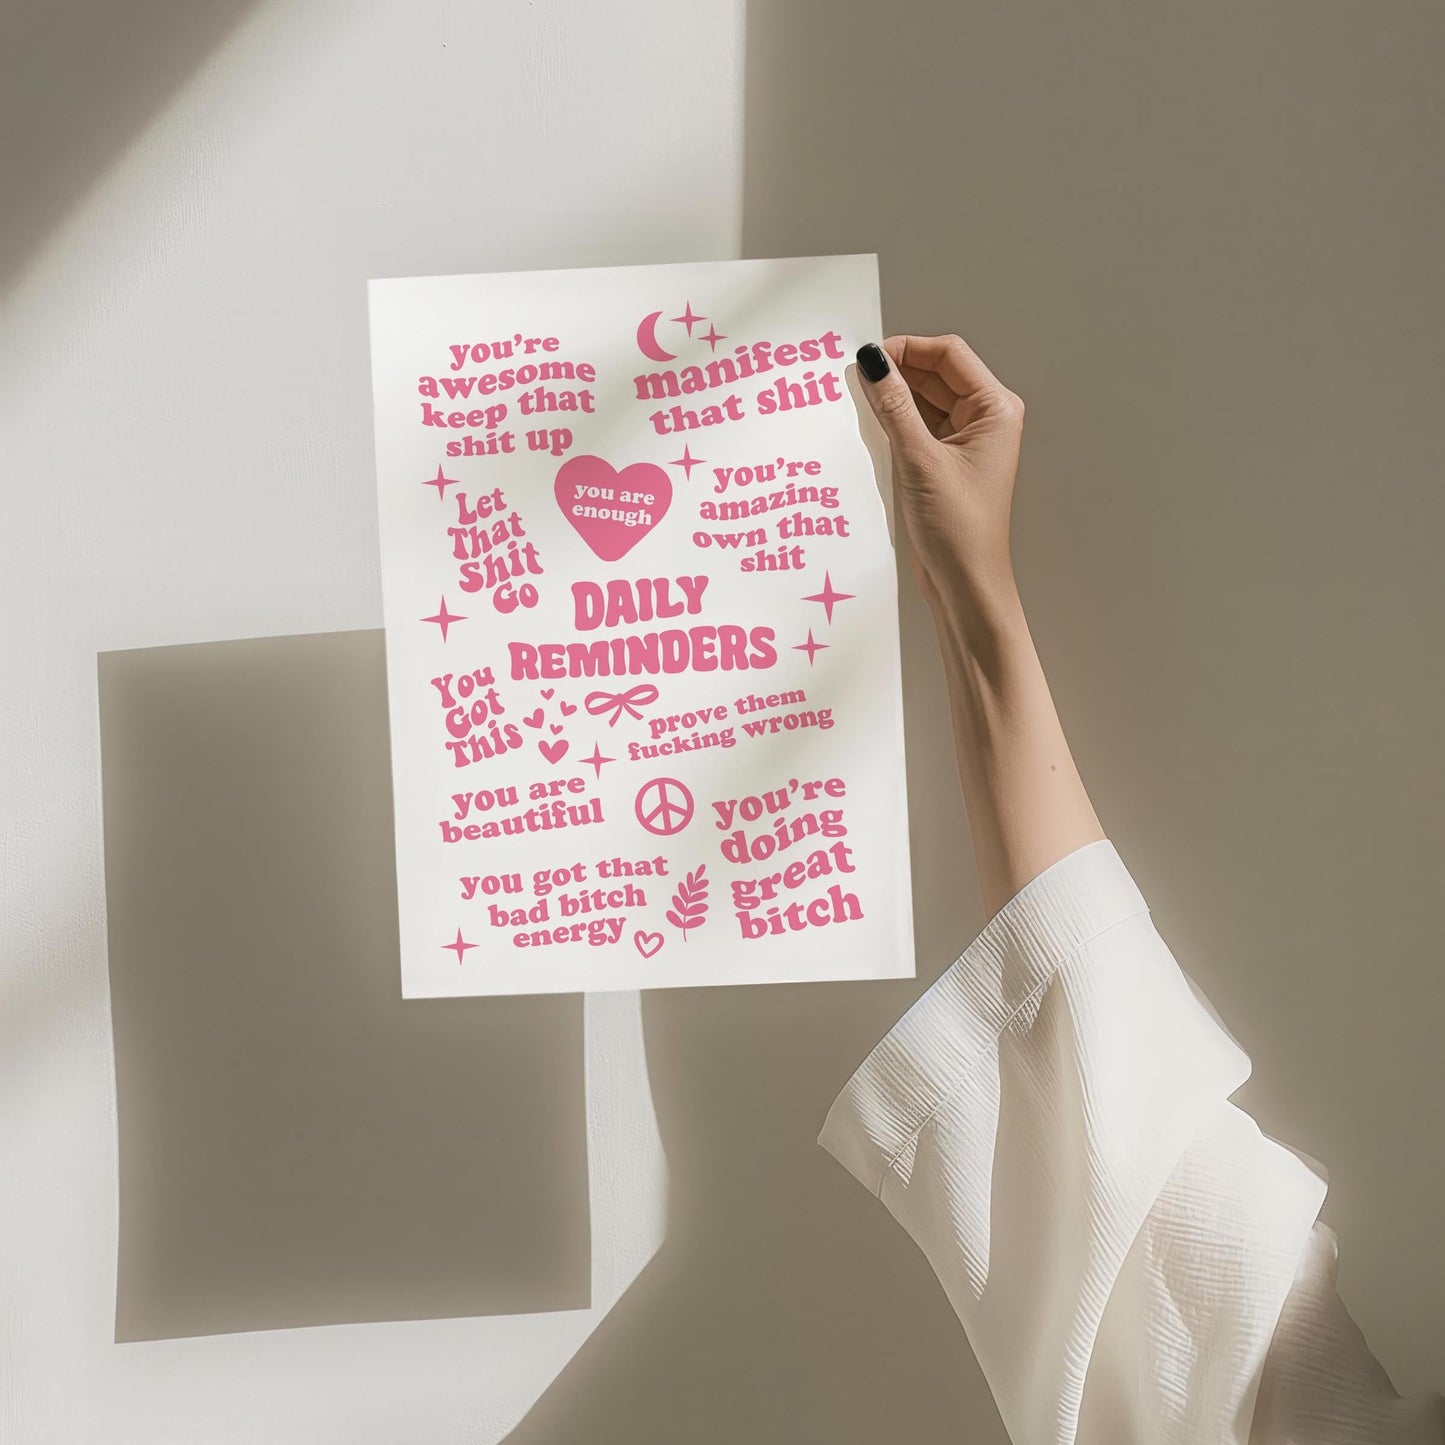 you're
awesome
keep that
shit up
manifest
that shit
Let
That
Shit
Go
you are
enough
you're
amazing
own that
shit
DAILY
REMINDERS
You
Got
This
prove them
fucking wrong
you are
beautiful
you're
doing
great
bitch
you got that
bad bitch
energy